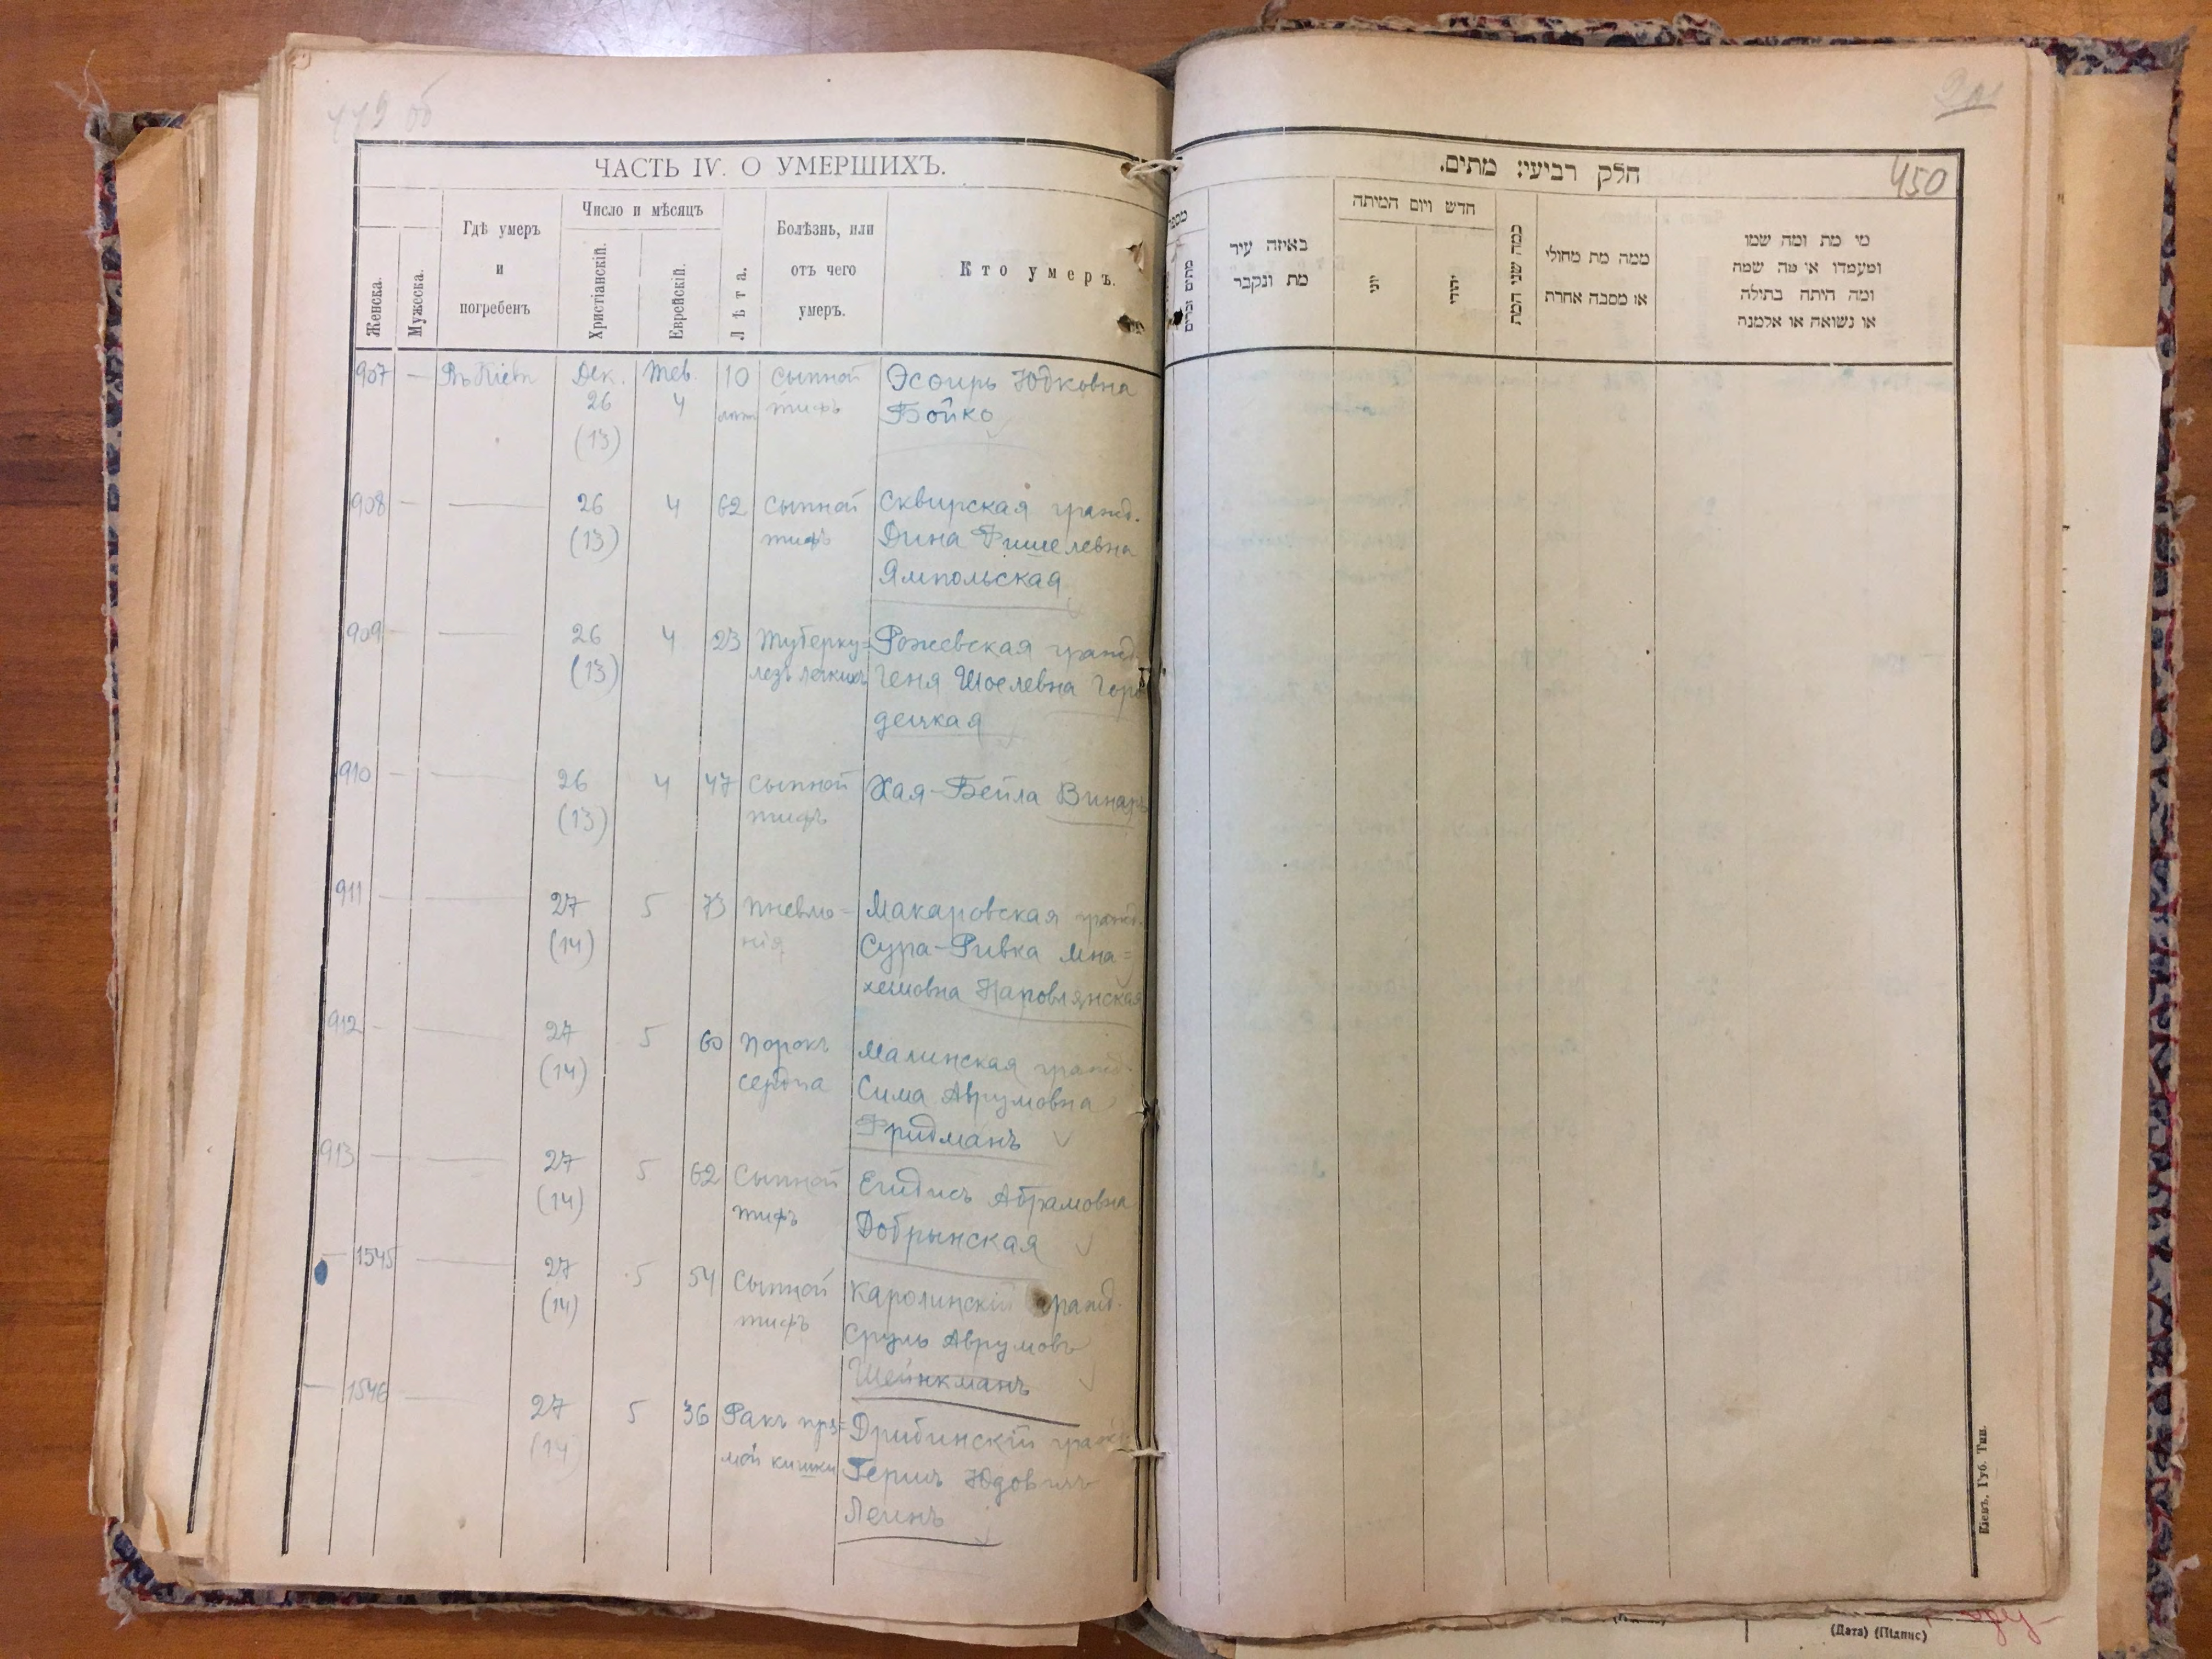 449 об
ЧАСТЬ IV. О УМЕРШИХЪ.
Женска.
Мужеска.
Гдѣ умеръ
и
погребенъ
Число и мѣсяцъ
Христіанскій.
Еврейскій.
Лѣта.
Болѣзнь, или
отъ чего
умеръ.
Кто умеръ.
907 — Въ Кіевѣ Дек. Тев. 10 Сыпной Эсѳирь Юдковна
26 4 лѣтъ тифъ Бойко
(13)
908 — — 26 4 62 Сыпной Сквирская гражд.
(13) тифъ Дина Фишелевна
Ямпольская
909 — — 26 4 23 Туберку= Рожевская гражд.
(13) лезъ легкихъ Геня Шоелевна Горо
децкая
910 — — 26 4 47 Сыпной Хая-Бейла Винаръ
(13) тифъ
911 — 27 5 73 Пневмо= Макаровская гражд.
(14) нія Сура-Ривка Мна=
хемовна Наровлянская
912 — — 27 5 60 Порокъ Малинская гражд.
(14) сердца Сима Аврумовна
Фридманъ
913 — — 27 5 62 Сыпной Абрамовна
(14) тифъ Добрынская
— 1545 — 27 5 54 Сыпной Каролинскій гражд.
(14) тифъ Сруль Аврумовъ
Шейнкманъ
— 1546 — 27 5 36 Ракъ пря= Дрибинскій гражд.
(14) мой кишки Гершъ Юдовичъ
Леинъ
450
חלק רביעי: מתים.
מתים זכרים
באיזה עיר
מת ונקבר
חדש ויום המיתה
יוני
יהודי
כמה שני המת
ממה מת מחולי
או מסבה אחרת
מי מת ומה שמו
ומעמדו או מה שמה
ומה היתה בתולה
או נשואה או אלמנה
Кіевъ, Губ. Тип.
(Дата) (Підпис)